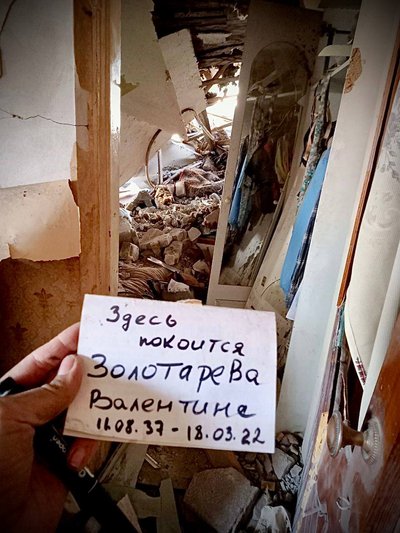 Здесь
покоится
Золотарева
Валентина
11.08.37 - 18.03.22